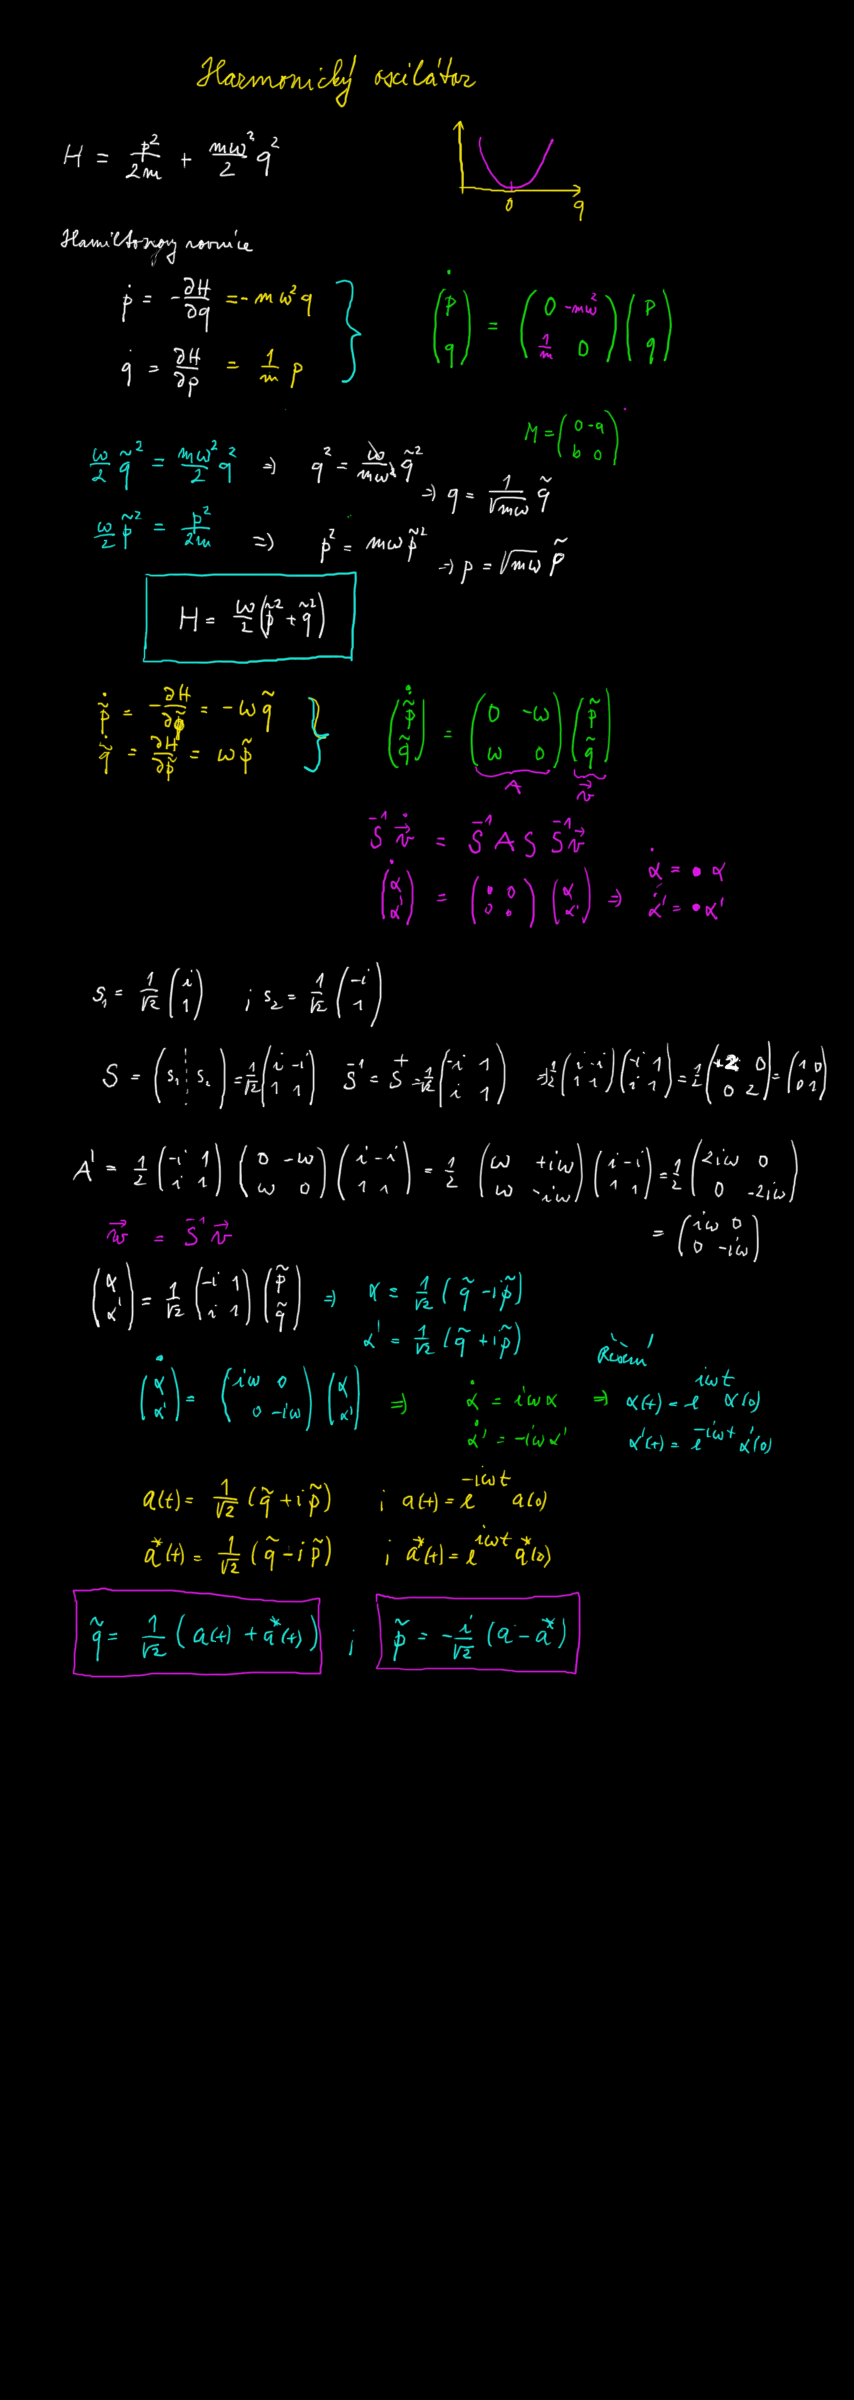 Harmonický oscilátor
H = p²/2m + mω²/2 q²
0 q
Hamiltonovy rovnice
ṗ = -∂H/∂q = -mω²q
q̇ = ∂H/∂p = 1/m p
(p q)˙ = (0 -mω² ; 1/m 0) (p q)
M = (0 -a ; b 0)
ω/2 q̃² = mω²/2 q² ⇒ q² = ω/mω² q̃² ⇒ q = 1/√mω q̃
ω/2 p̃² = p²/2m ⇒ p² = mω p̃² ⇒ p = √mω p̃
H = ω/2 (p̃² + q̃²)
p̃˙ = -∂H/∂q̃ = -ω q̃
q̃˙ = ∂H/∂p̃ = ω p̃
(p̃ q̃)˙ = (0 -ω ; ω 0) (p̃ q̃)
A v⃗
S⁻¹ v⃗˙ = S⁻¹ A S S⁻¹ v⃗
(α α')˙ = (• 0 ; 0 •) (α α') ⇒ α̇ = • α
α̇' = • α'
s₁ = 1/√2 (i 1) ; s₂ = 1/√2 (-i 1)
S = (s₁ ¦ s₂) = 1/√2 (i -i ; 1 1) S⁻¹ = S⁺ = 1/√2 (-i 1 ; i 1) ⇒ 1/2 (i -i ; 1 1) (-i 1 ; i 1) = 1/2 (2 0 ; 0 2) = (1 0 ; 0 1)
A' = 1/2 (-i 1 ; i 1) (0 -ω ; ω 0) (i -i ; 1 1) = 1/2 (ω +iω ; ω -iω) (i -i ; 1 1) = 1/2 (2iω 0 ; 0 -2iω)
= (iω 0 ; 0 -iω)
w⃗ = S⁻¹ v⃗
(α α') = 1/√2 (-i 1 ; i 1) (p̃ q̃) ⇒ α = 1/√2 (q̃ - ip̃)
α' = 1/√2 (q̃ + ip̃)
Řešení
(α α')˙ = (iω 0 ; 0 -iω) (α α') ⇒ α̇ = iωα ⇒ α(t) = e^{iωt} α(0)
α̇' = -iωα' α'(t) = e^{-iωt} α'(0)
a(t) = 1/√2 (q̃ + ip̃) ; a(t) = e^{-iωt} a(0)
a*(t) = 1/√2 (q̃ - ip̃) ; a*(t) = e^{iωt} a*(0)
q̃ = 1/√2 (a(t) + a*(t)) ; p̃ = -i/√2 (a - a*)